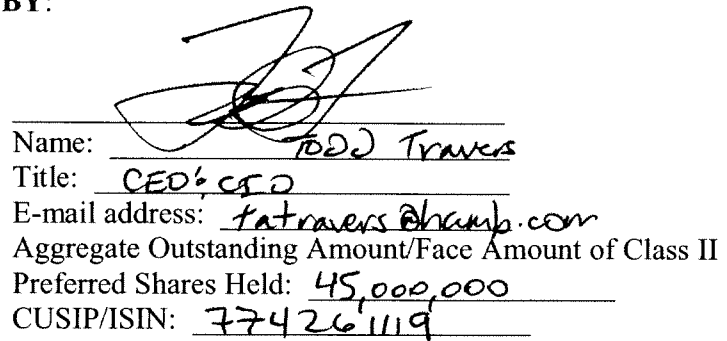 BY:
Name: TODD Travers
Title: CEO & CIO
E-mail address: tatravers@hamb.com
Aggregate Outstanding Amount/Face Amount of Class II
Preferred Shares Held: 45,000,000
CUSIP/ISIN: 774261119